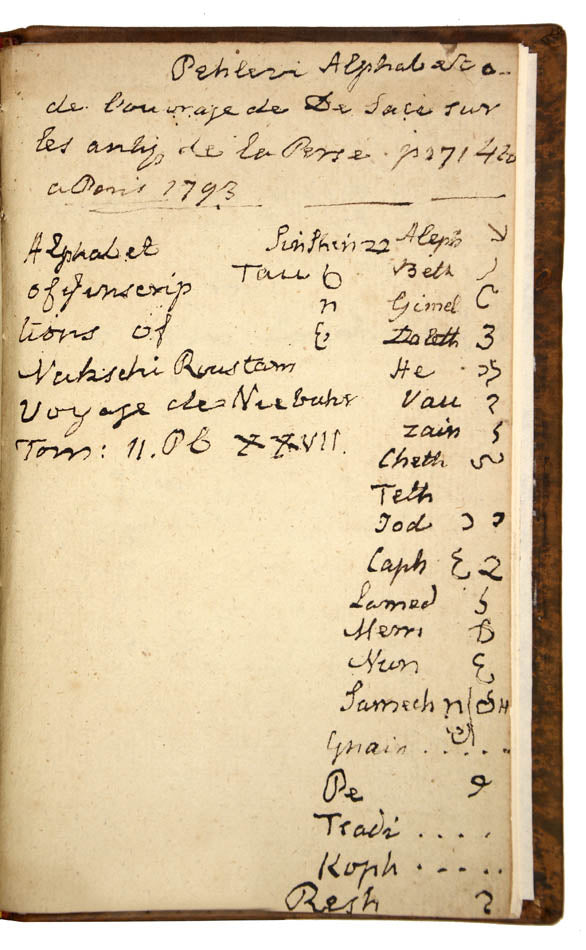 Pehlevi Alphabet
de l'ouvrage de De Saci sur
les antiq de la Perse. p 171
a Paris 1793
Alphabet
of inscrip
tions of
Nakschi Roustam
Voyage de Niebuhr
Tom: II. Pl XXVII.
Sin Shin
Tau
Aleph
Beth
Gimel
Daleth
He
Vau
Zain
Cheth
Teth
Iod
Caph
Lamed
Mem
Nun
Samech
Gnain . . . . .
Pe
Tradi . . . .
Koph . . . . .
Resh